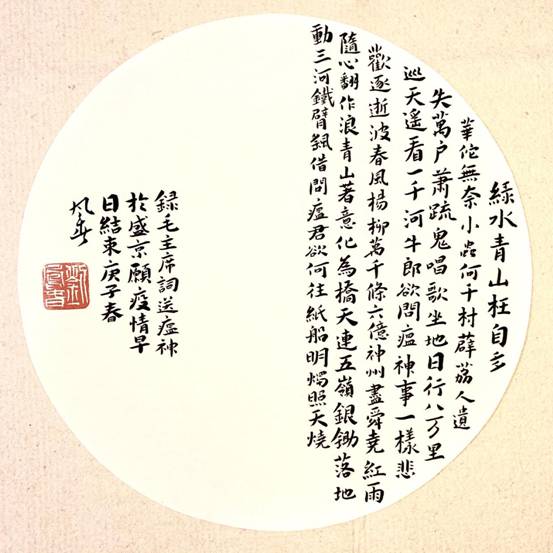 綠水青山枉自多
華佗無奈小蟲何千村薜荔人遺
失萬户蕭疏鬼唱歌坐地日行八万里
巡天遥看一千河牛郎欲問瘟神事一樣悲
歡逐逝波春風楊柳萬千條六億神州盡舜堯紅雨
隨心翻作浪青山著意化為橋天連五嶺銀鋤落地
動三河鐵臂借問瘟君欲何往紙船明燭照天燒
録毛主席詞送瘟神
於盛京願疫情早
日結束庚子春